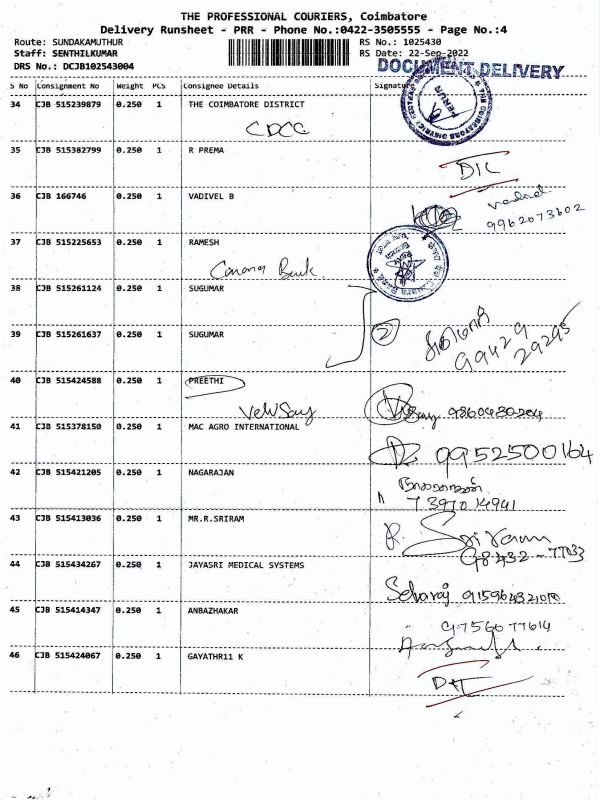 THE PROFESSIONAL COURIERS, Coimbatore
Delivery Runsheet - PRR - Phone No.:0422-3505555 - Page No.:4
Route: SUNDAKAMUTHUR RS No.: 1025430
Staff: SENTHILKUMAR RS Date: 22-Sep-2022
DRS No.: DCJB102543004 DOCUMENT DELIVERY
S No Consignment No Weight PCS Consignee Details Signatu
34 CJB 515239879 0.250 1 THE COIMBATORE DISTRICT
CDCC
PERUR
35 CJB 515382799 0.250 1 R PREMA
DIL
36 CJB 166746 0.250 1 VADIVEL B
9962073602
37 CJB 515225653 0.250 1 RAMESH
Canara Bank
38 CJB 515261124 0.250 1 SUGUMAR
39 CJB 515261637 0.250 1 SUGUMAR
2
99429
29295
40 CJB 515424588 0.250 1 PREETHI
9860430204
41 CJB 515378150 0.250 1 MAC AGRO INTERNATIONAL
9952500164
42 CJB 515421205 0.250 1 NAGARAJAN
நாகராஜன்
7397014941
43 CJB 515413036 0.250 1 MR.R.SRIRAM
R. Sriram
98432-77033
44 CJB 515434267 0.250 1 JAYASRI MEDICAL SYSTEMS
Selvaraj
45 CJB 515414347 0.250 1 ANBAZHAKAR
9756677614
46 CJB 515424067 0.250 1 GAYATHR11 K